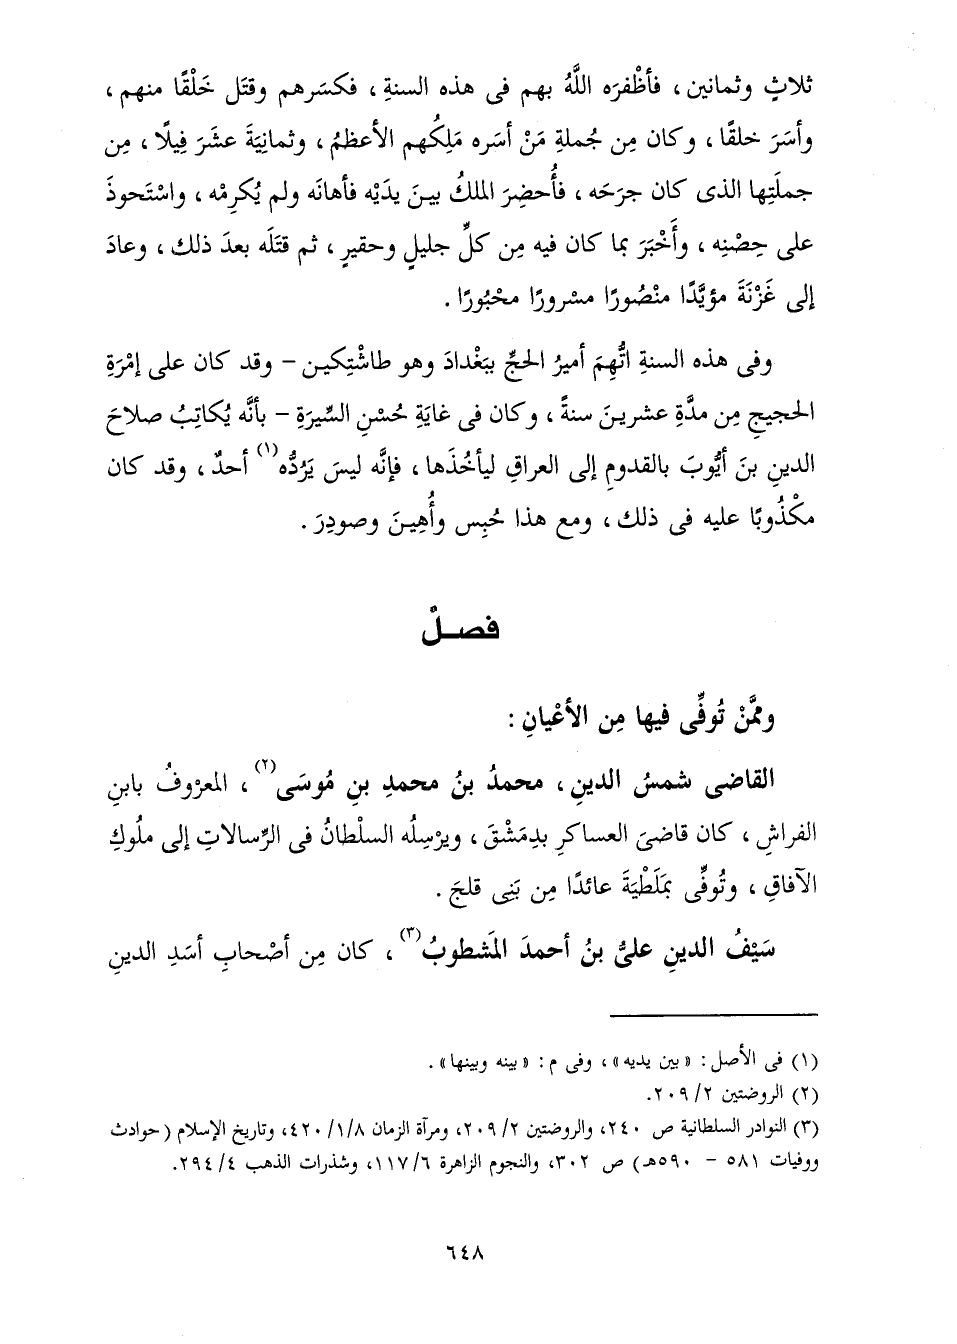 ثلاثٍ وثمانين ، فأظْفرَه اللَّهُ بهم فى هذه السنةِ ، فكسَرهم وقتَل خَلْقًا منهم ،
وأسَرَ خلقًا ، وكان مِن جُملةِ مَنْ أسَره مَلِكُهم الأعظمُ ، وثمانِيَةَ عشَرَ فِيلًا ، مِن
جملَتِها الذى كان جرَحَه ، فأُحضِرَ الملكُ بينَ يدَيْه فأهانَه ولم يُكرِمْه ، واسْتَحوذَ
على حِصْنِه ، وأَخْبَرَ بما كان فيه مِن كلِّ جليلٍ وحقيرٍ ، ثم قتَلَه بعدَ ذلك ، وعادَ
إلى غَزْنَةَ مؤيَّدًا منْصُورًا مسْرورًا محْبُورًا .
وفى هذه السنةِ اتُّهِمَ أميرُ الحجِّ ببَغْدادَ وهو طاشْتِكين – وقد كان على إمْرَةِ
الحجيجِ مِن مدَّةِ عشرينَ سنةً ، وكان فى غايَةِ حُسْنِ السِّيرَةِ – بأنَّه يُكاتِبُ صلاحَ
الدينِ بنَ أيُّوبَ بالقدومِ إلى العراقِ ليأخُذَها ، فإنَّه ليسَ يَرُدُّه(١) أحدٌ ، وقد كان
مكْذُوبًا عليه فى ذلك ، ومع هذا حُبِس وأُهِينَ وصودِرَ .
فصلٌ
وممَّنْ تُوفِّى فيها مِن الأعْيانِ :
القاضى شمسُ الدينِ ، محمدُ بنُ محمدِ بنِ مُوسَى(٢) ، المعرْوفُ بابنِ
الفراشِ ، كان قاضىَ العساكرِ بدِمَشْقَ ، ويرْسِلُه السلْطانُ فى الرِّسالاتِ إلى ملُوكِ
الآفاقِ ، وتُوفِّى بمَلَطْيَةَ عائدًا مِن بَنِى قلجَ .
سَيْفُ الدينِ علىُّ بنُ أحمدَ المَشطوبُ(٣) ، كان مِن أصْحابِ أسَدِ الدينِ
(١) فى الأصل : « بين يديه » ، وفى م : « بينه وبينها » .
(٢) الروضتين ٢/ ٢٠٩.
(٣) النوادر السلطانية ص ٢٤٠، والروضتين ٢/ ٢٠٩، ومرآة الزمان ٨/ ١/ ٤٢٠، وتاريخ الإسلام ( حوادث
ووفيات ٥٨١ – ٥٩٠هـ) ص ٣٠٢، والنجوم الزاهرة ٦/ ١١٧، وشذرات الذهب ٤/ ٢٩٤.
٦٤٨